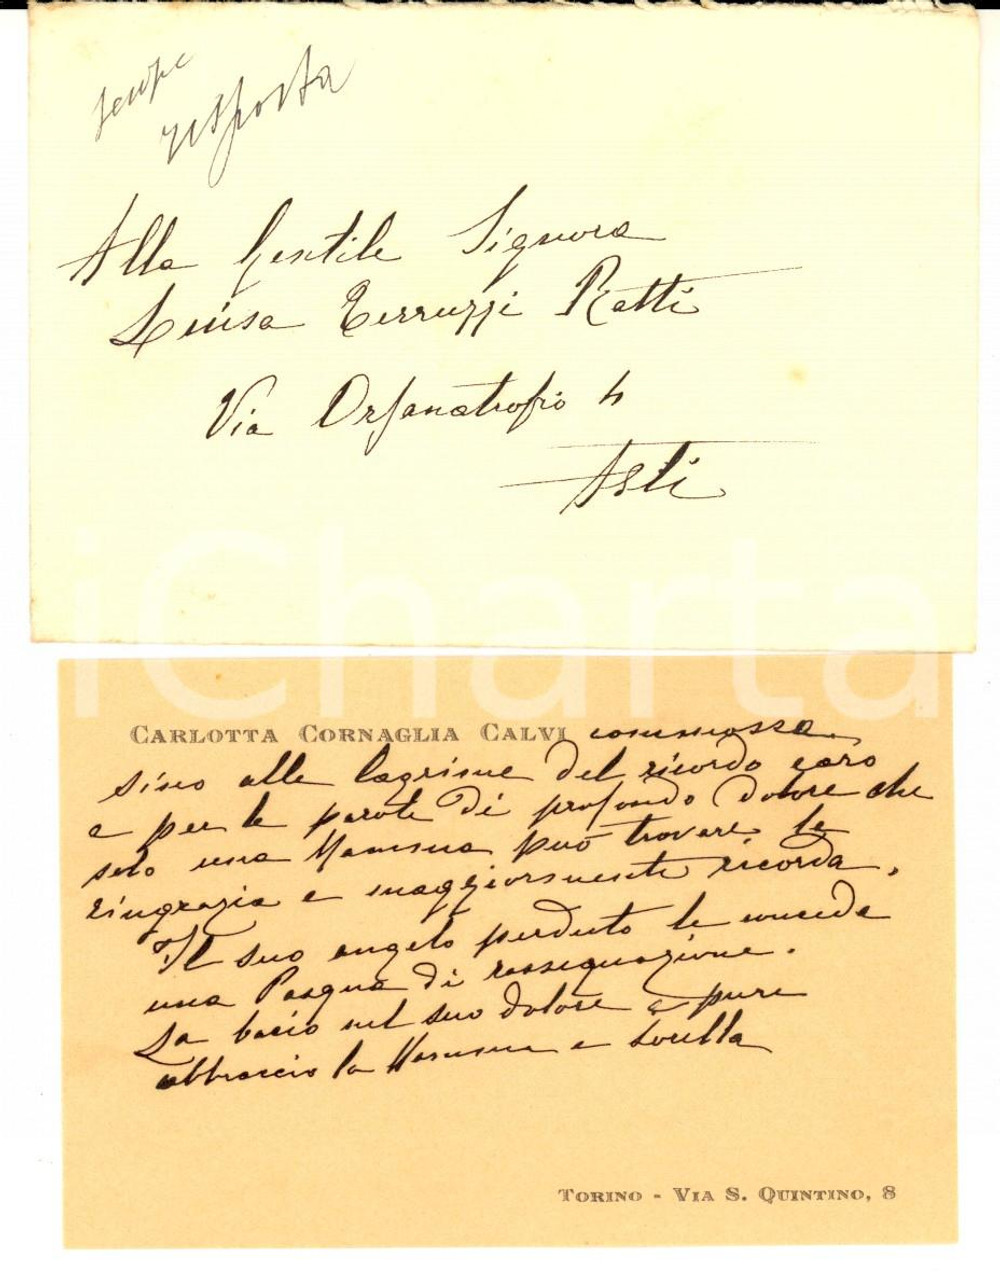 risposta
Alla Gentile Signora
Luisa Terruzzi Ratti
Via Orfanotrofio 4
Asti
iCharta
CARLOTTA CORNAGLIA CALVI commossa
sino alle lagrime del ricordo caro
e per le parole di profondo dolore che
solo una Mamma può trovare, le
ringrazia e maggiormente ricorda.
Il suo angelo perduto le conceda
una Pasqua di rassegnazione.
La bacio nel suo dolore e pure
abbraccio la Mamma e sorella
TORINO - VIA S. QUINTINO, 8